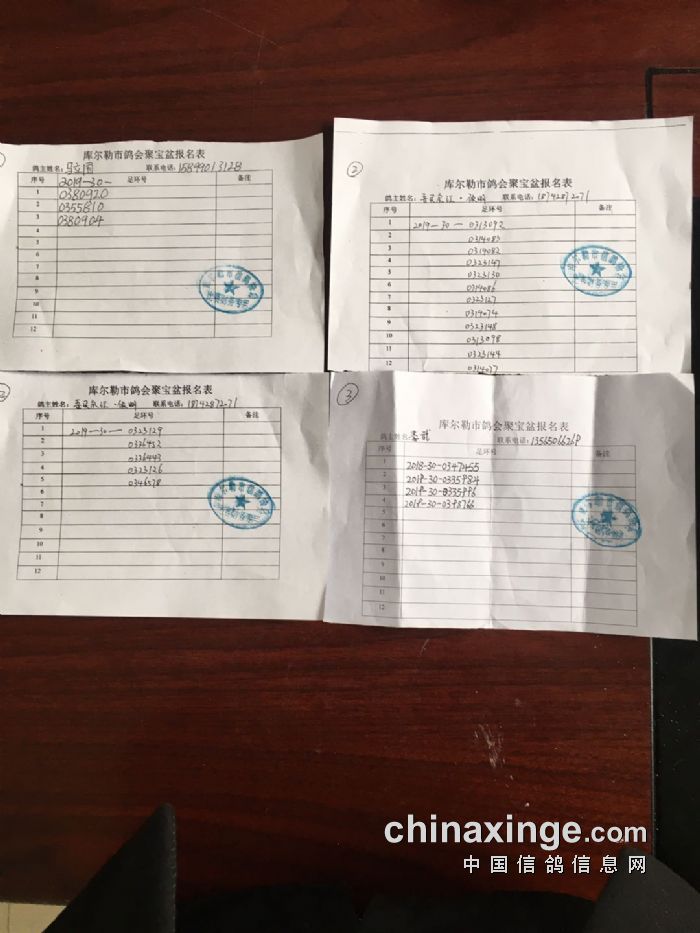 库尔勒市鸽会聚宝盆报名表
鸽主姓名：马立国 联系电话：15899013128
序号 足环号 备注
2019-30-
1 0380920
2 0355810
3 0380904
4
5
6
7
8
9
10
11
12
②
库尔勒市鸽会聚宝盆报名表
鸽主姓名： 联系电话：18742872071
序号 足环号 备注
1 2019-30-0313092
2 0314083
3 0314082
4 0323147
5 0323130
6 0314086
7 0323127
8 0314074
9 0323148
10 0313098
11 0323144
12 0314037
②
库尔勒市鸽会聚宝盆报名表
鸽主姓名： 联系电话：18742872071
序号 足环号 备注
1 2019-30-0323129
2 0326452
3 0326443
4 0323126
5 0346578
6
7
8
9
10
11
12
③
库尔勒市鸽会聚宝盆报名表
鸽主姓名： 联系电话：13565066268
序号 足环号 备注
1 2018-30-0347455
2 2019-30-0335984
3 2019-30-0335996
4 2019-30-0398766
5
6
7
8
9
10
11
12
chinaxinge.com
中国信鸽信息网